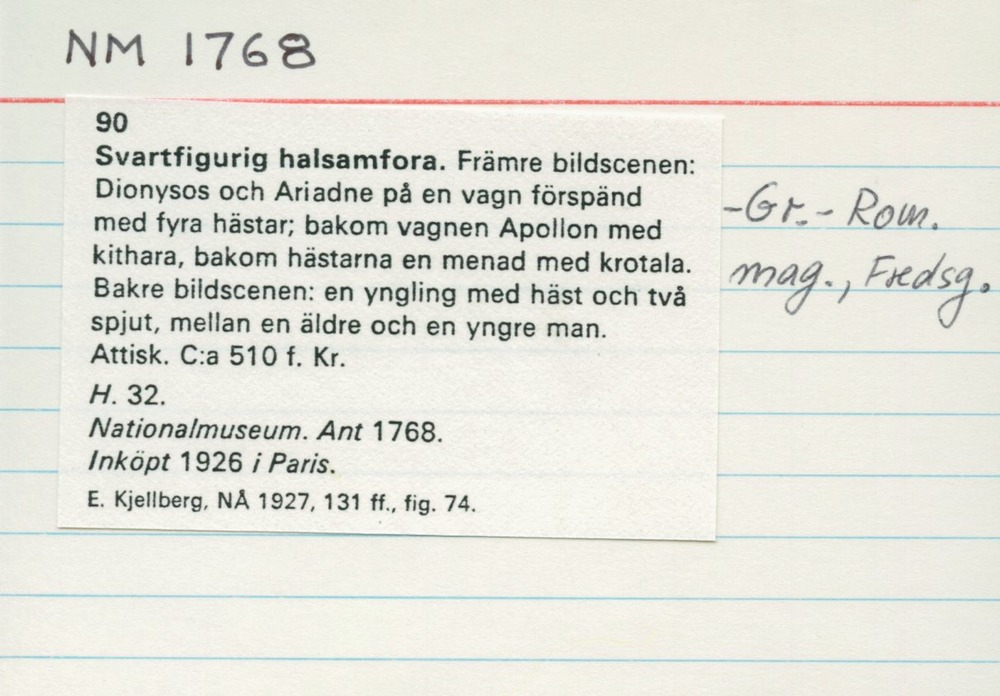 NM 1768
90
Svartfigurig halsamfora. Främre bildscenen:
Dionysos och Ariadne på en vagn förspänd
med fyra hästar; bakom vagnen Apollon med
kithara, bakom hästarna en menad med krotala.
Bakre bildscenen: en yngling med häst och två
spjut, mellan en äldre och en yngre man.
Attisk. C:a 510 f. Kr.
H. 32.
Nationalmuseum. Ant 1768.
Inköpt 1926 i Paris.
E. Kjellberg, NÅ 1927, 131 ff., fig. 74.
-Gr.- Rom.
mag., Fredsg.